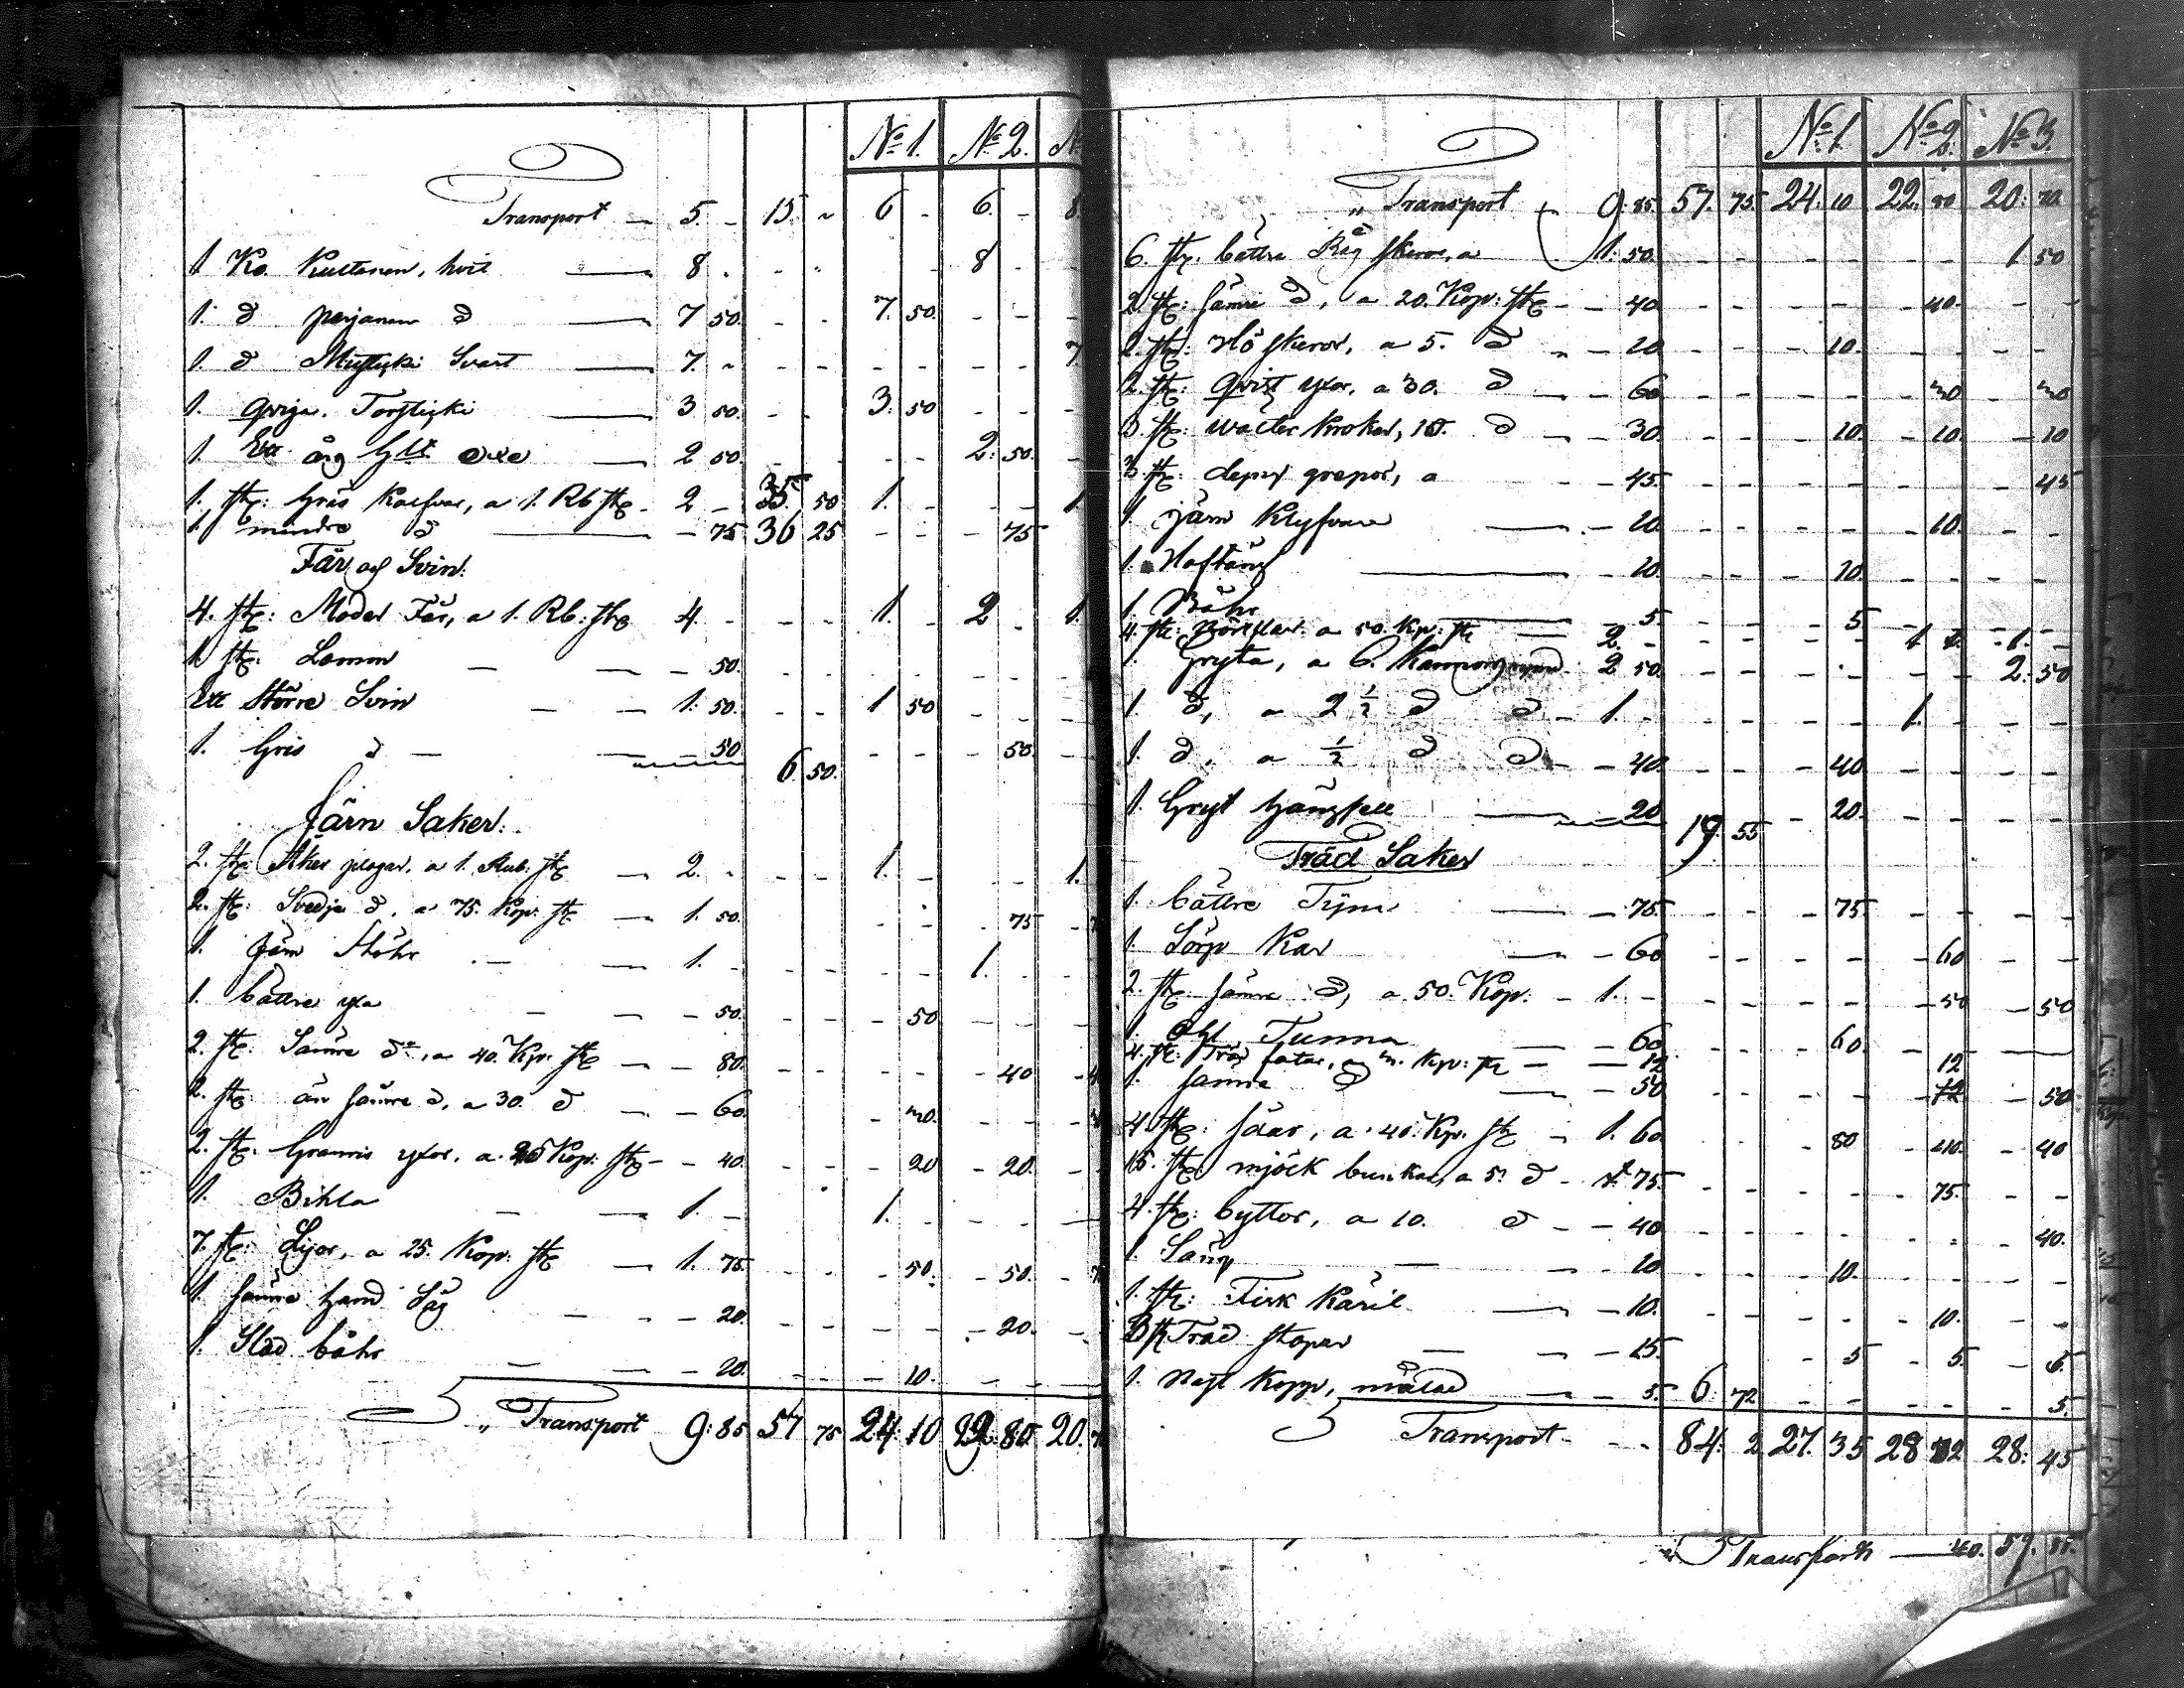 No 1. No 2. N
Transport — 5. - 15. " 6 - 6. - 8
1 Ko. Kultanen, hvit — 8 . - - - 8 - -
1. d perjanen d — 7 50. - - 7. 50. - - -
1. d Musticki Svart — 7. " - - - - - - 7
1. Qviga. Torsticki — 3 50. - - 3. 50 - - -
1. Ett årg glt oxe — 2 50. - - - 2. 50. -
1. stk: Gräs Kalfvar, a 1. Rb stk - 2 - 35. 50 1. - - - 1.
1. mindre d — - 75 36 25 - - - 75
Får och Svin.
4. stk: Moder Får, a 1. Rb. stk 4. - - - 1. - 2 - 1.
1. stk: Lamm — - 50. - - - - -
Ett större Svin — 1. 50. - - 1 50 - - -
1. Gris d — 50 6. 50. - - - 50. -
Järn Saker.
2. stk: Åker plogar, a 1. Rub. stk — 2. - - - 1. - - - 1.
2. stk: Svedje d, a 75. Kop. stk — 1. 50. - - - 75
1. Järn Stöhr — 1. - - - - - 1. - -
1. bättre yxa — - 50. - - - 50 - - -
2. stk: Sämre do, a 40. Kop. stk — - 80. - - - - - 40 - 4
2. stk: än sämre d, a 30. d — - 60. - 30. - - -
2. stk. Gramis yxor, a 20 Kop. stk — - 40. - - - 20 - 20. - -
1. Bihla — 1. - 1. - - -
7. stk: Lijor, a 25. Kop. stk — 1. 75. - - - 50. - 50. -
1. sämre hand Såg — - 20. - - - - - 20. -
1. Slad båhr — - 20. - - - 10. - - -
" Transport 9: 85 57 75 24: 10 22: 80 20.
No 1. No 2. No 3.
" Transport 9: 85. 57. 75. 24: 10 22: 80 20: 70.
6. stk. bättre Råg skäror, a 1. 50. - - - - - - 1 50
2. stk: sämre d, a 20. Kop: stk - - 40 - - - - - 40. - -
2. stk: Hö skäror, a 5. d - - 10 - - - 10. - - - -
2. stk: Qvist yxor, a 30. d - - 60 - - - - - 30 - 30
3. stk: Wälte krokar, 10. d - - 30. - - - 10. - 10. - 10
3. stk: grepor, a - - 45. - - - - - - - 45
1. järn — - 10. - - - - - 10. - -
1. Hoftång — - 10. - - - 10. - - - -
1. Båhr — - 5 - - - 5 - - - -
4. stk: a 50. Kop. stk — 2. - - - - -
1. Gryta, a 6. Kannors rymd 2 50. - - - - - 2. 50
1 d, a 2 1/2 d d - 1. - - - - - 1. - - -
1. d, a 1/2 d d - - 40. - - - 40. - - - -
1. Gryt — 20 19. 55 - 20. - - - -
Träd Saker
1. bättre Tijna — - 75. - - - 75. - - - -
1. Sörp Kar — - 60 - - - - - 60 - -
2. stk. sämre d, a 50. Kop. - 1. - - - - - - 50 - 50
1. Öhl Tunna — - 60 - - - 60. - - —
4. stk: Träd fatar, a 3. Kop: stk — - 12 12
1. sämre d — - 50 - - - - - - 50.
4. stk: såar, a 40. Kop. stk — 1. 60 80 - 40. - 40
15. stk: mjölk bunkar, a 5. d - 75. - - - - - 75. - -
4. stk: byttor, a 10. d - - 40 - - - - - - - 40.
1. Sång — - 10 - - - 10. - - - -
1. stk: Fisk Käril — - 10. - - - - - 10. - -
3 stk Träd stopar — - 15. - 5 - 5. - 5.
1. Kopp, målad — - 5. 6. 72 - - - - - 5.
Transport - - - 84: 2 27. 35 28 12 28: 45
Transport — 40. 57. 85.